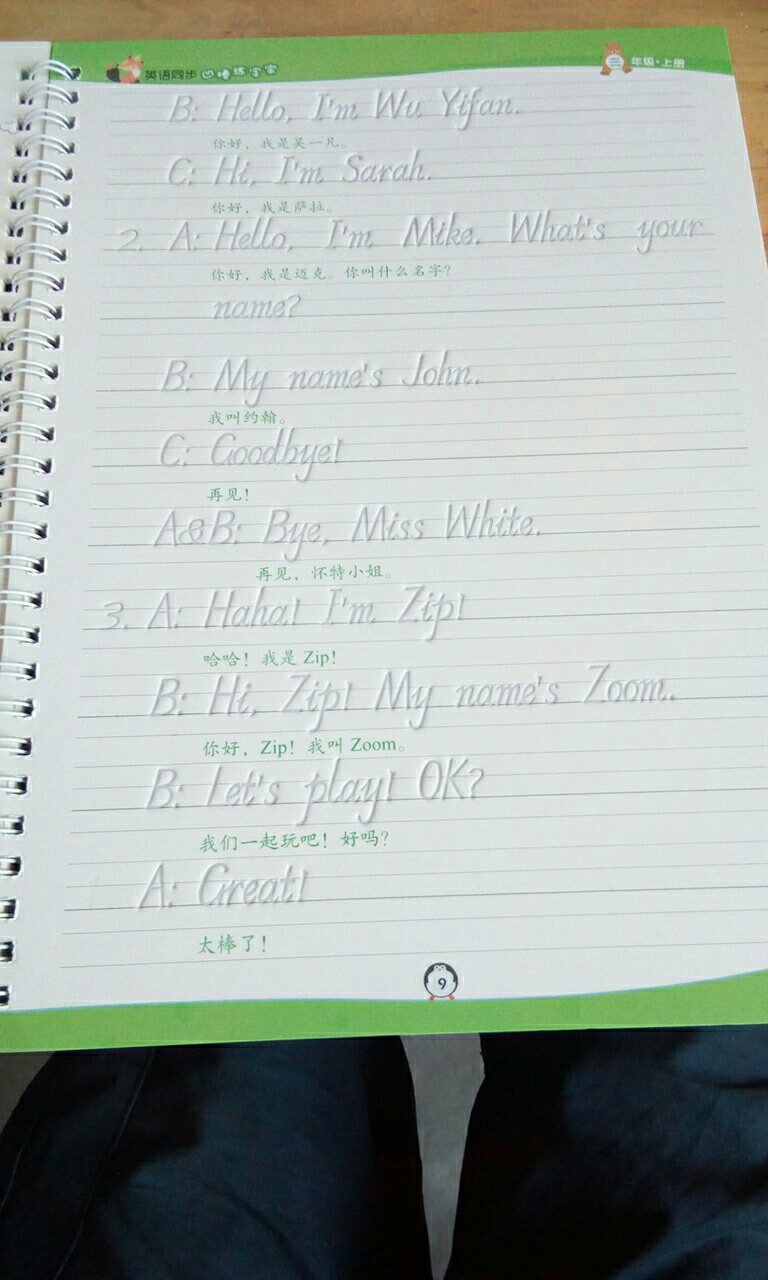 英语同步 凹槽练字宝
三 年级·上册
B: Hello, I'm Wu Yifan.
你好，我是吴一凡。
C: Hi, I'm Sarah.
你好，我是萨拉。
2. A: Hello, I'm Mike. What's your
你好，我是迈克。你叫什么名字？
name?
B: My name's John.
我叫约翰。
C: Goodbye!
再见！
A&B: Bye, Miss White.
再见，怀特小姐。
3. A: Haha! I'm Zip!
哈哈！我是 Zip!
B: Hi, Zip! My name's Zoom.
你好，Zip! 我叫 Zoom。
B: Let's play! OK?
我们一起玩吧！好吗？
A: Great!
太棒了！
9